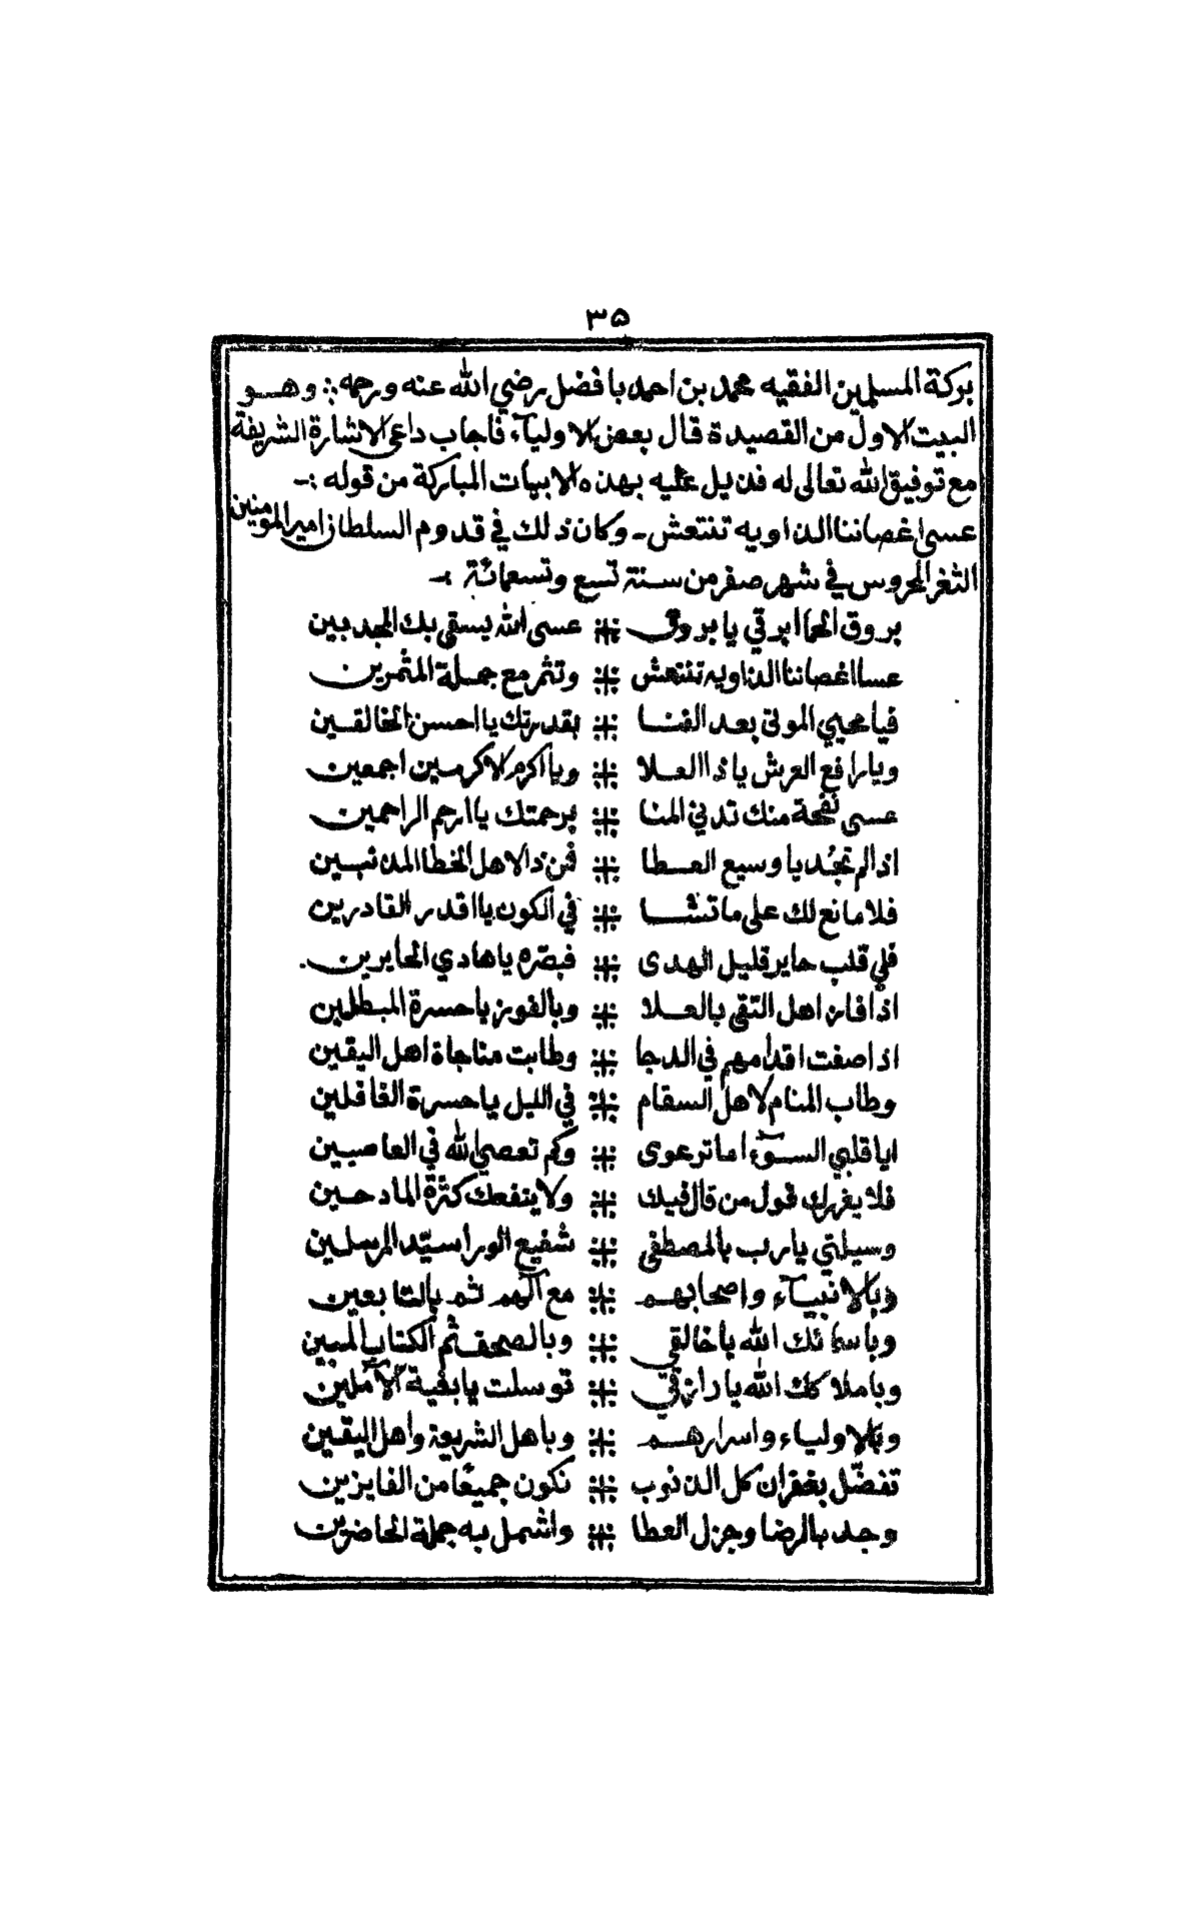 ٣٥
بركة المسلمين الفقيه محمد بن احمد بافضل رضي الله عنه ورحمه :· وهــو
البيت الاول من القصيدة قال بعض الاولياء فاجاب داعى الاشارة الشريفة
مع توفيق الله تعالى له فذيل عليه بهذه الابيات المباركة من قوله :-
عسى اغصاننا الذاويه تنتعش - وكان ذلك في قدوم السلطان امير المومنين
الثغر المحروس في شهر صفر من سنة تسع وتسعمائة :-
بروق الحما ابرقي يا بروق ⁜ عسى الله يسقي بك المجدبين
عسا اغصاننا الذاويه تنتعش ⁜ وتثمر مع جملة المثمرين
فيا محيي الموتى بعد الفنـا ⁜ بقدرتك يا احسن الخالقـين
ويا رافع العرش يا ذا العـلا ⁜ ويا اكرم الاكرمـين اجمعين
عسى نفحة منك تدني المنا ⁜ برحمتك يا ارحم الراحمين
اذا لم تجُد يا وسيع العـطا ⁜ فمن ذا لاهل الخطا المذنبـين
فلا مانع لك على ما تشـا ⁜ في الكون يا اقدر القادرين
فلي قلب حاير قليل الهدى ⁜ فبصّره يا هادي الحايرين
اذا فاز اهل التقى بالعـلا ⁜ وبالفوز يا حسرة المبطلين
اذا صفت اقدامهم في الدجا ⁜ وطابت مناجاة اهل اليقين
وطاب المنام لاهل السقام ⁜ في الليل يا حسرة الغافلين
ايا قلبي السـوّء اما ترعوى ⁜ وكم تعصي الله في العاصـين
فلا يغررك قول من قال فيك ⁜ ولا ينفعك كثرة المادحـين
وسيلتي يا رب بالمصطفى ⁜ شفيع الورا سيّد المرسلـين
وبالانبيـاء واصحابهـم ⁜ مع آلهم ثم بالتابعين
وباسمائك الله يا خالقي ⁜ وبالصحف ثم الكتاب المبين
وباملاكك الله يا رازقي ⁜ توسلت يا بغية الآملين
وبالاولياء واسرارهـم ⁜ وباهل الشريعة واهل اليقين
تفضّل بغفران كل الذنوب ⁜ نكون جميعًا من الفايزين
وجد بالرضا وجزل العطا ⁜ واشمل به جملة الحاضرين